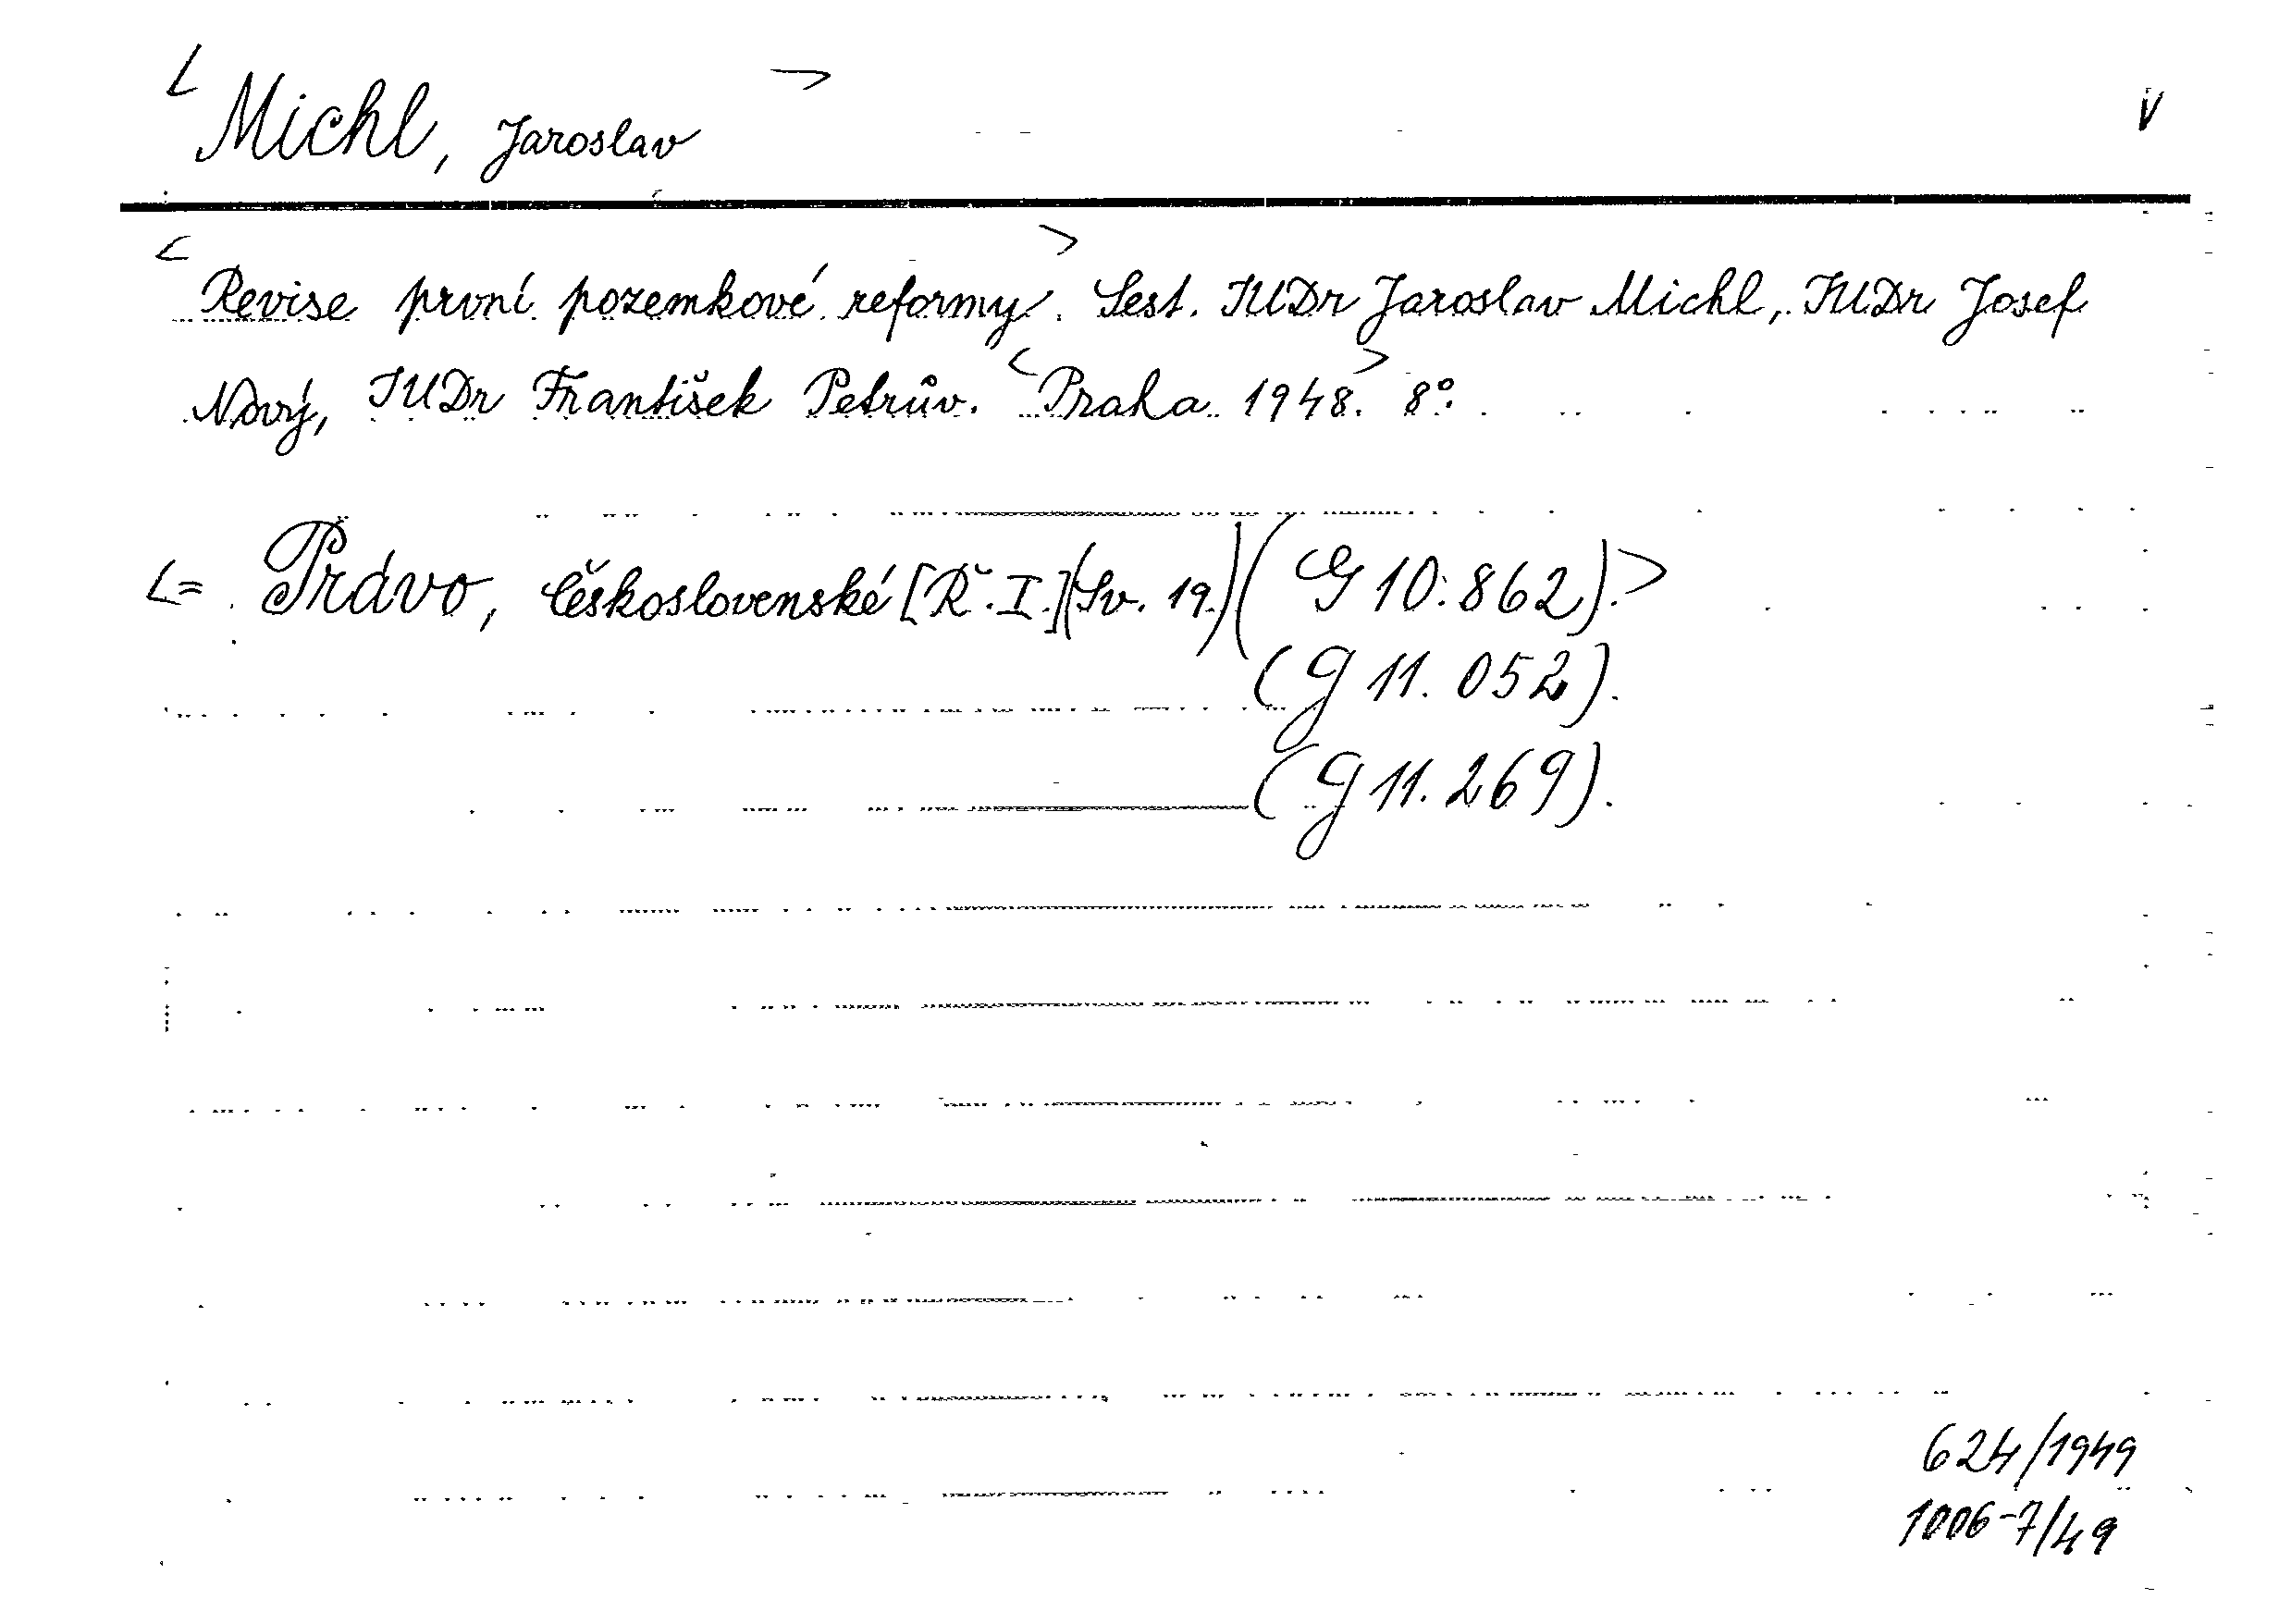 < Michl, Jaroslav > V
< Revise první pozemkové reformy >. Sest. JUDr Jaroslav Michl, JUDr Josef
Nový, JUDr František Petrův. < Praha 1948. > 8°.
<= Právo, Československé [Ř. I.] (Sv. 19.) (G 10.862). >
(G 11.052).
(G 11.269).
624/1949
1006-7/49